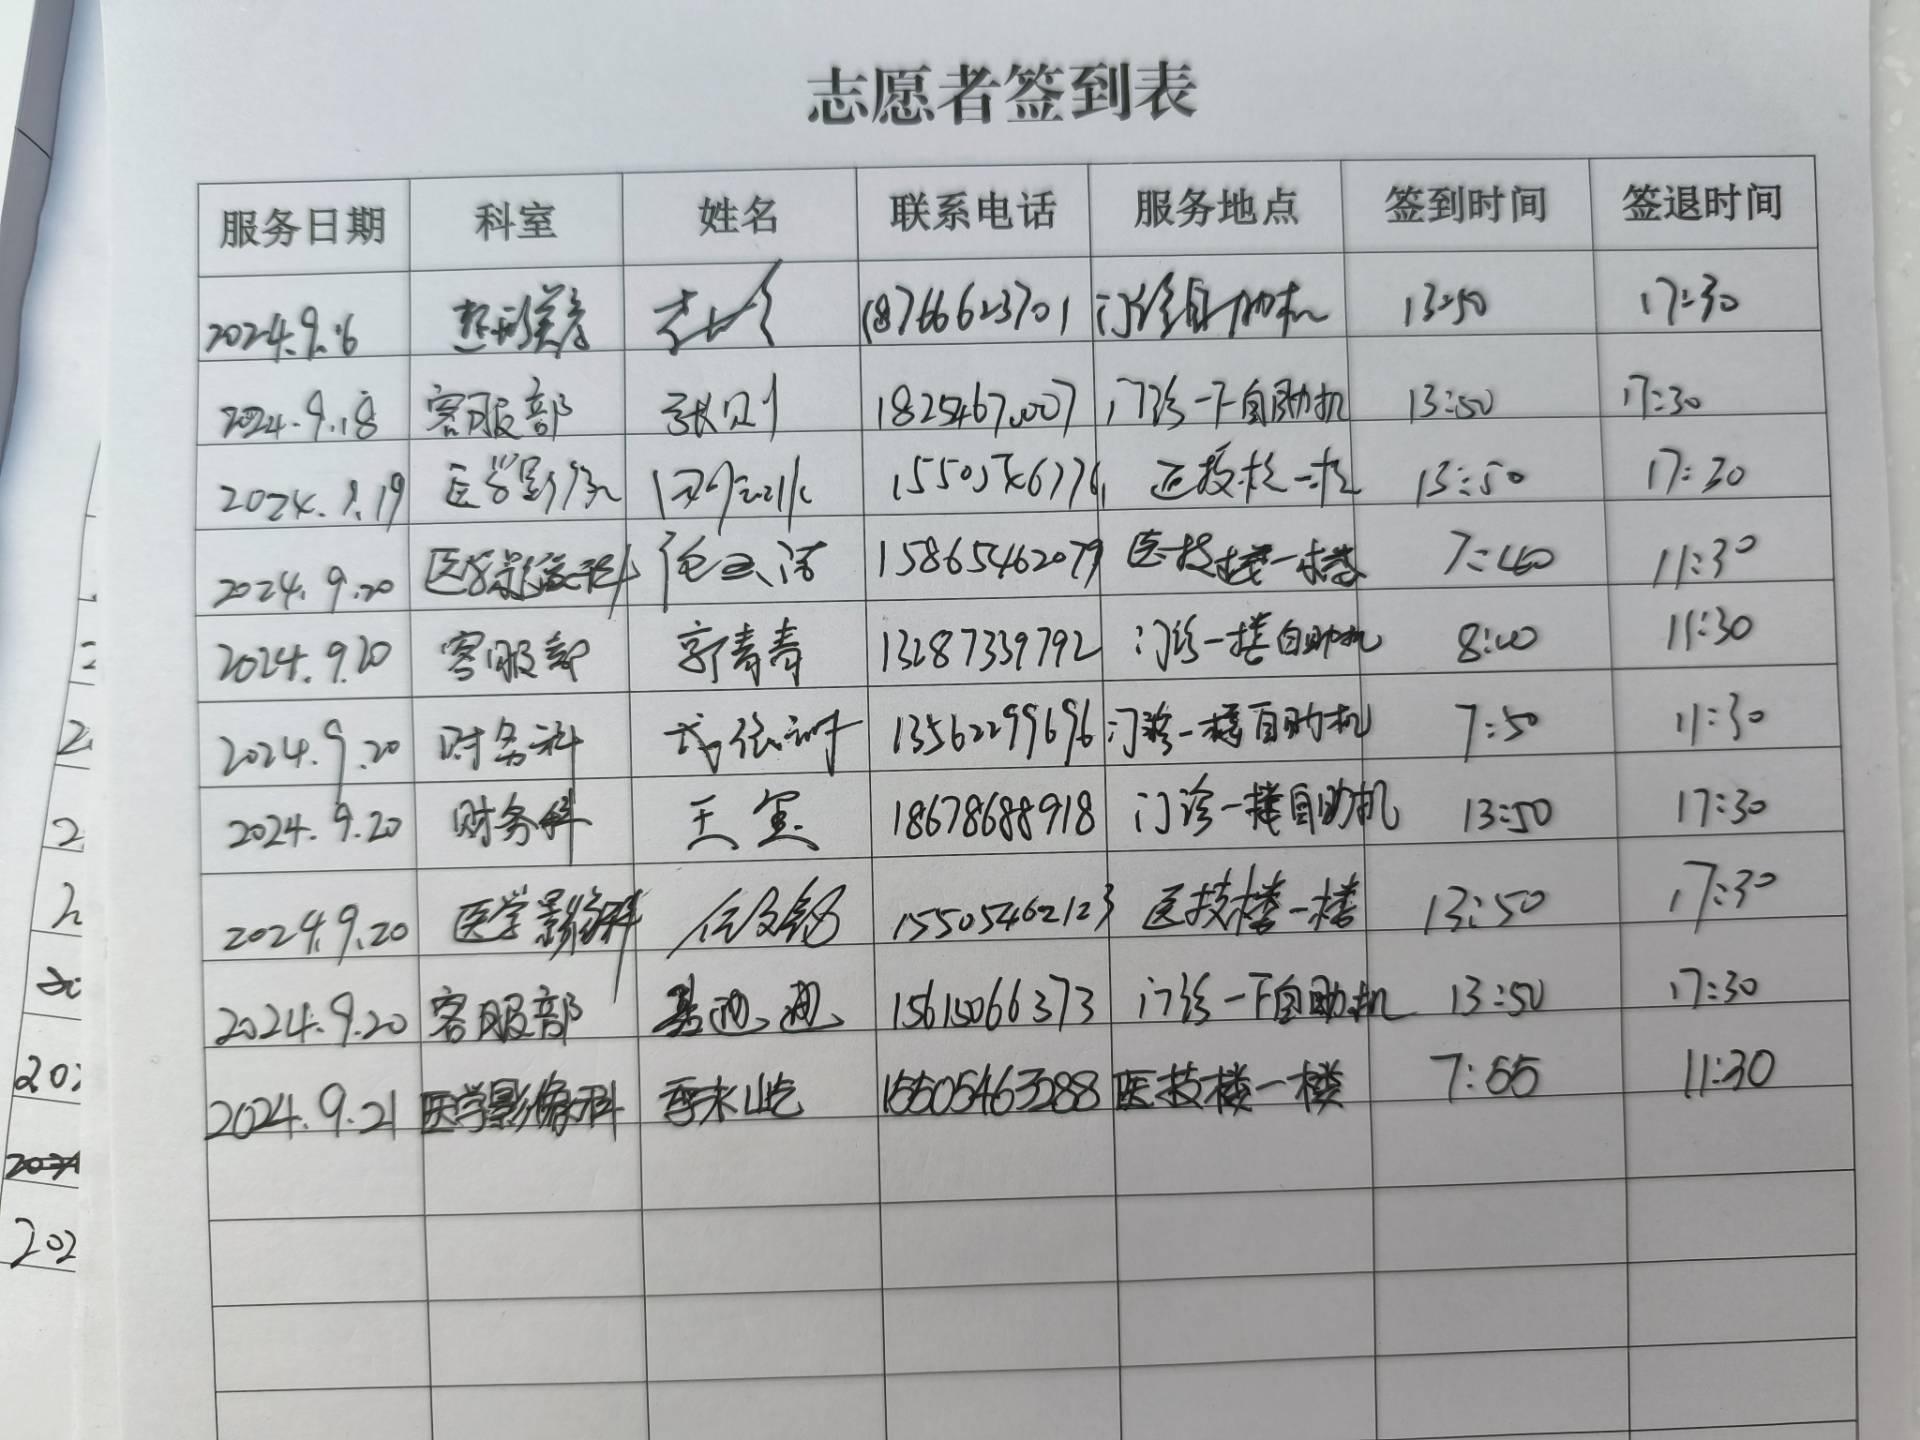 志愿者签到表
服务日期 科室 姓名 联系电话 服务地点 签到时间 签退时间
2024.9.16 整形美容 18766623701 门诊自助机 13:50 17:30
2024.9.18 客服部 张则 门诊一下自助机 13:50 17:30
2024.9.19 医学影像 医技楼一楼 13:50 17:30
2024.9.20 医学影像科 15865462079 医技楼一楼 7:40 11:30
2024.9.20 客服部 郭青青 13287339792 门诊一楼自助机 8:00 11:30
2024.9.20 财务科 13562299696 门诊一楼自助机 7:50 11:30
2024.9.20 财务科 18678688918 门诊一楼自助机 13:50 17:30
2024.9.20 医学影像科 15505462123 医技楼一楼 13:50 17:30
2024.9.20 客服部 门诊一下自助机 13:50 17:30
2024.9.21 医学影像科 15505463288 医技楼一楼 7:55 11:30